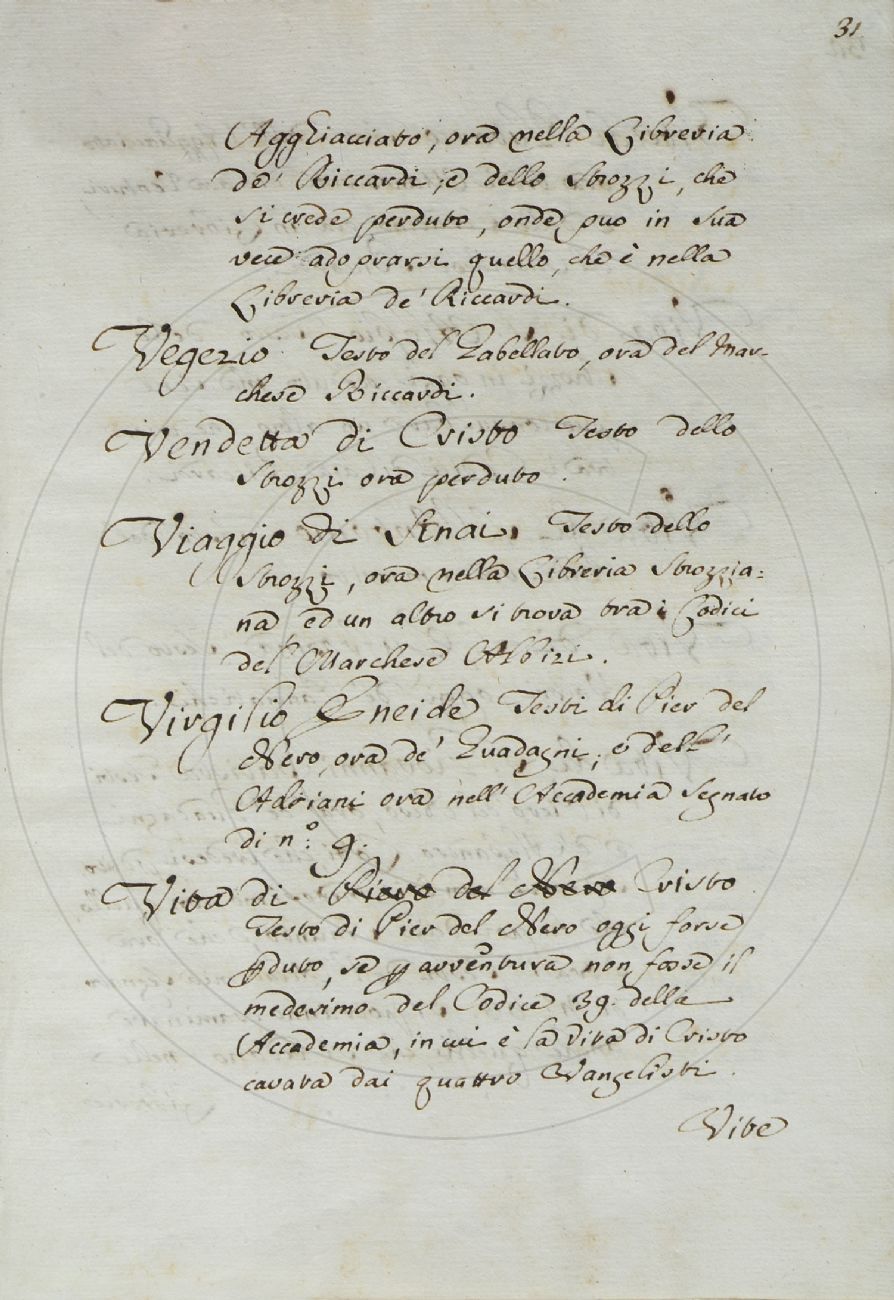 31
Agghiacciato, ora nella Libreria
de' Riccardi, e dello Strozzi, che
si crede perduto, onde puo in sua
vece adoprarsi quello, che è nella
Libreria de' Riccardi.
Vegezio Testo del Gabellato, ora del Mar-
chese Riccardi.
Vendetta di Cristo Testo dello
Strozzi ora perduto.
Viaggio di Sinai, Testo dello
Strozzi, ora nella Libreria Strozzia=
na, ed un altro si trova tra i Codici
del Marchese Albizi.
Virgilio Eneide Testi di Pier del
Nero, ora de' Guadagni, e dell'
Adriani ora nell' Accademia segnato
di nº: 9.
Vita di Piero del Nero Cristo
Testo di Pier del Nero oggi forse
ꝑduto, se ꝑ avventura non fosse il
medesimo del Codice 39. della
Accademia, in cui è la Vita di Cristo
cavata dai quattro Vangelisti.
Vite